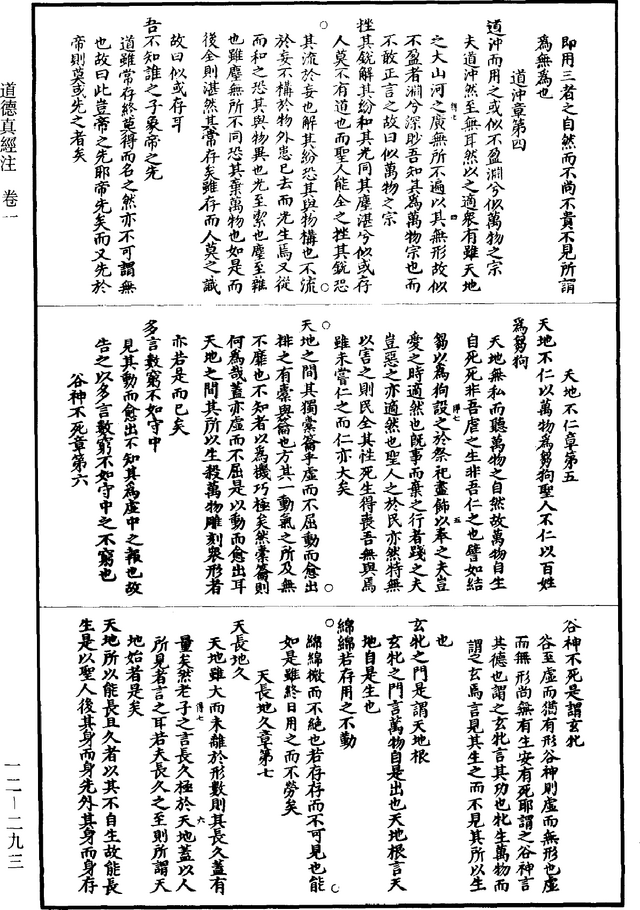 道德真經注　卷一
一二—二九三
即用三者之自然而不尚不貴不見所謂
為無為也
道沖章第四
道沖而用之或似不盈淵兮似萬物之宗
夫道沖然至無耳然以之適衆有雖天地
之大山河之廣無所不遍以其無形故似
不盈者淵兮深眇吾知其為萬物宗也而
不敢正言之故曰似萬物之宗
挫其銳解其紛和其光同其塵湛兮似或存
人莫不有道也而聖人能全之挫其銳恐
其流於妄也解其紛恐其與物構也不流
於妄不構於物外患已去而光生焉又從
而和之恐其與物異也光至絜也塵至雜
也雖塵無所不同恐其棄萬物也如是而
後全則湛然其常存矣雖存而人莫之識
故曰似或存耳
吾不知誰之子象帝之先
道雖常存終莫得而名之然亦不可謂無
也故曰此豈帝之先耶帝先矣而又先於
帝則莫或先之者矣
天地不仁章第五
天地不仁以萬物為芻狗聖人不仁以百姓
為芻狗
天地無私而聽萬物之自然故萬物自生
自死死非吾虐之生非吾仁之也譬如結
芻以為狗設之於祭祀盡飾以奉之夫豈
愛之時適然也既事而棄之行者踐之夫
豈惡之亦適然也聖人之於民亦然特無
以害之則民全其性死生得喪吾無與焉
雖未嘗仁之而仁亦大矣
天地之間其猶橐籥乎虛而不屈動而愈出
排之有橐與籥也方其一動氣之所及無
不靡也不知者以為機巧極矣然橐籥則
何為哉蓋亦虛而不屈是以動而愈出耳
天地之間其所以生殺萬物雕刻衆形者
亦若是而已矣
多言數窮不如守中
見其動而愈出不知其為虛中之報也故
告之以多言數窮不如守中之不窮也
谷神不死章第六
谷神不死是謂玄牝
谷至虛而猶有形谷神則虛而無形也虛
而無形尚無有生安有死耶謂之谷神言
其德也謂之玄牝言其功也牝生萬物而
謂之玄焉言見其生之而不見其所以生
也
玄牝之門是謂天地根
玄牝之門言萬物自是出也天地根言天
地自是生也
綿綿若存用之不勤
綿綿微而不絕也若存存而不可見也能
如是雖終日用之而不勞矣
天長地久章第七
天長地久
天地雖大而未離於形數則其長久蓋有
量矣然老子之言長久極於天地蓋以人
所見者言之耳若夫長久之至則所謂天
地始者是矣
天地所以能長且久者以其不自生故能長
生是以聖人後其身而身先外其身而身存